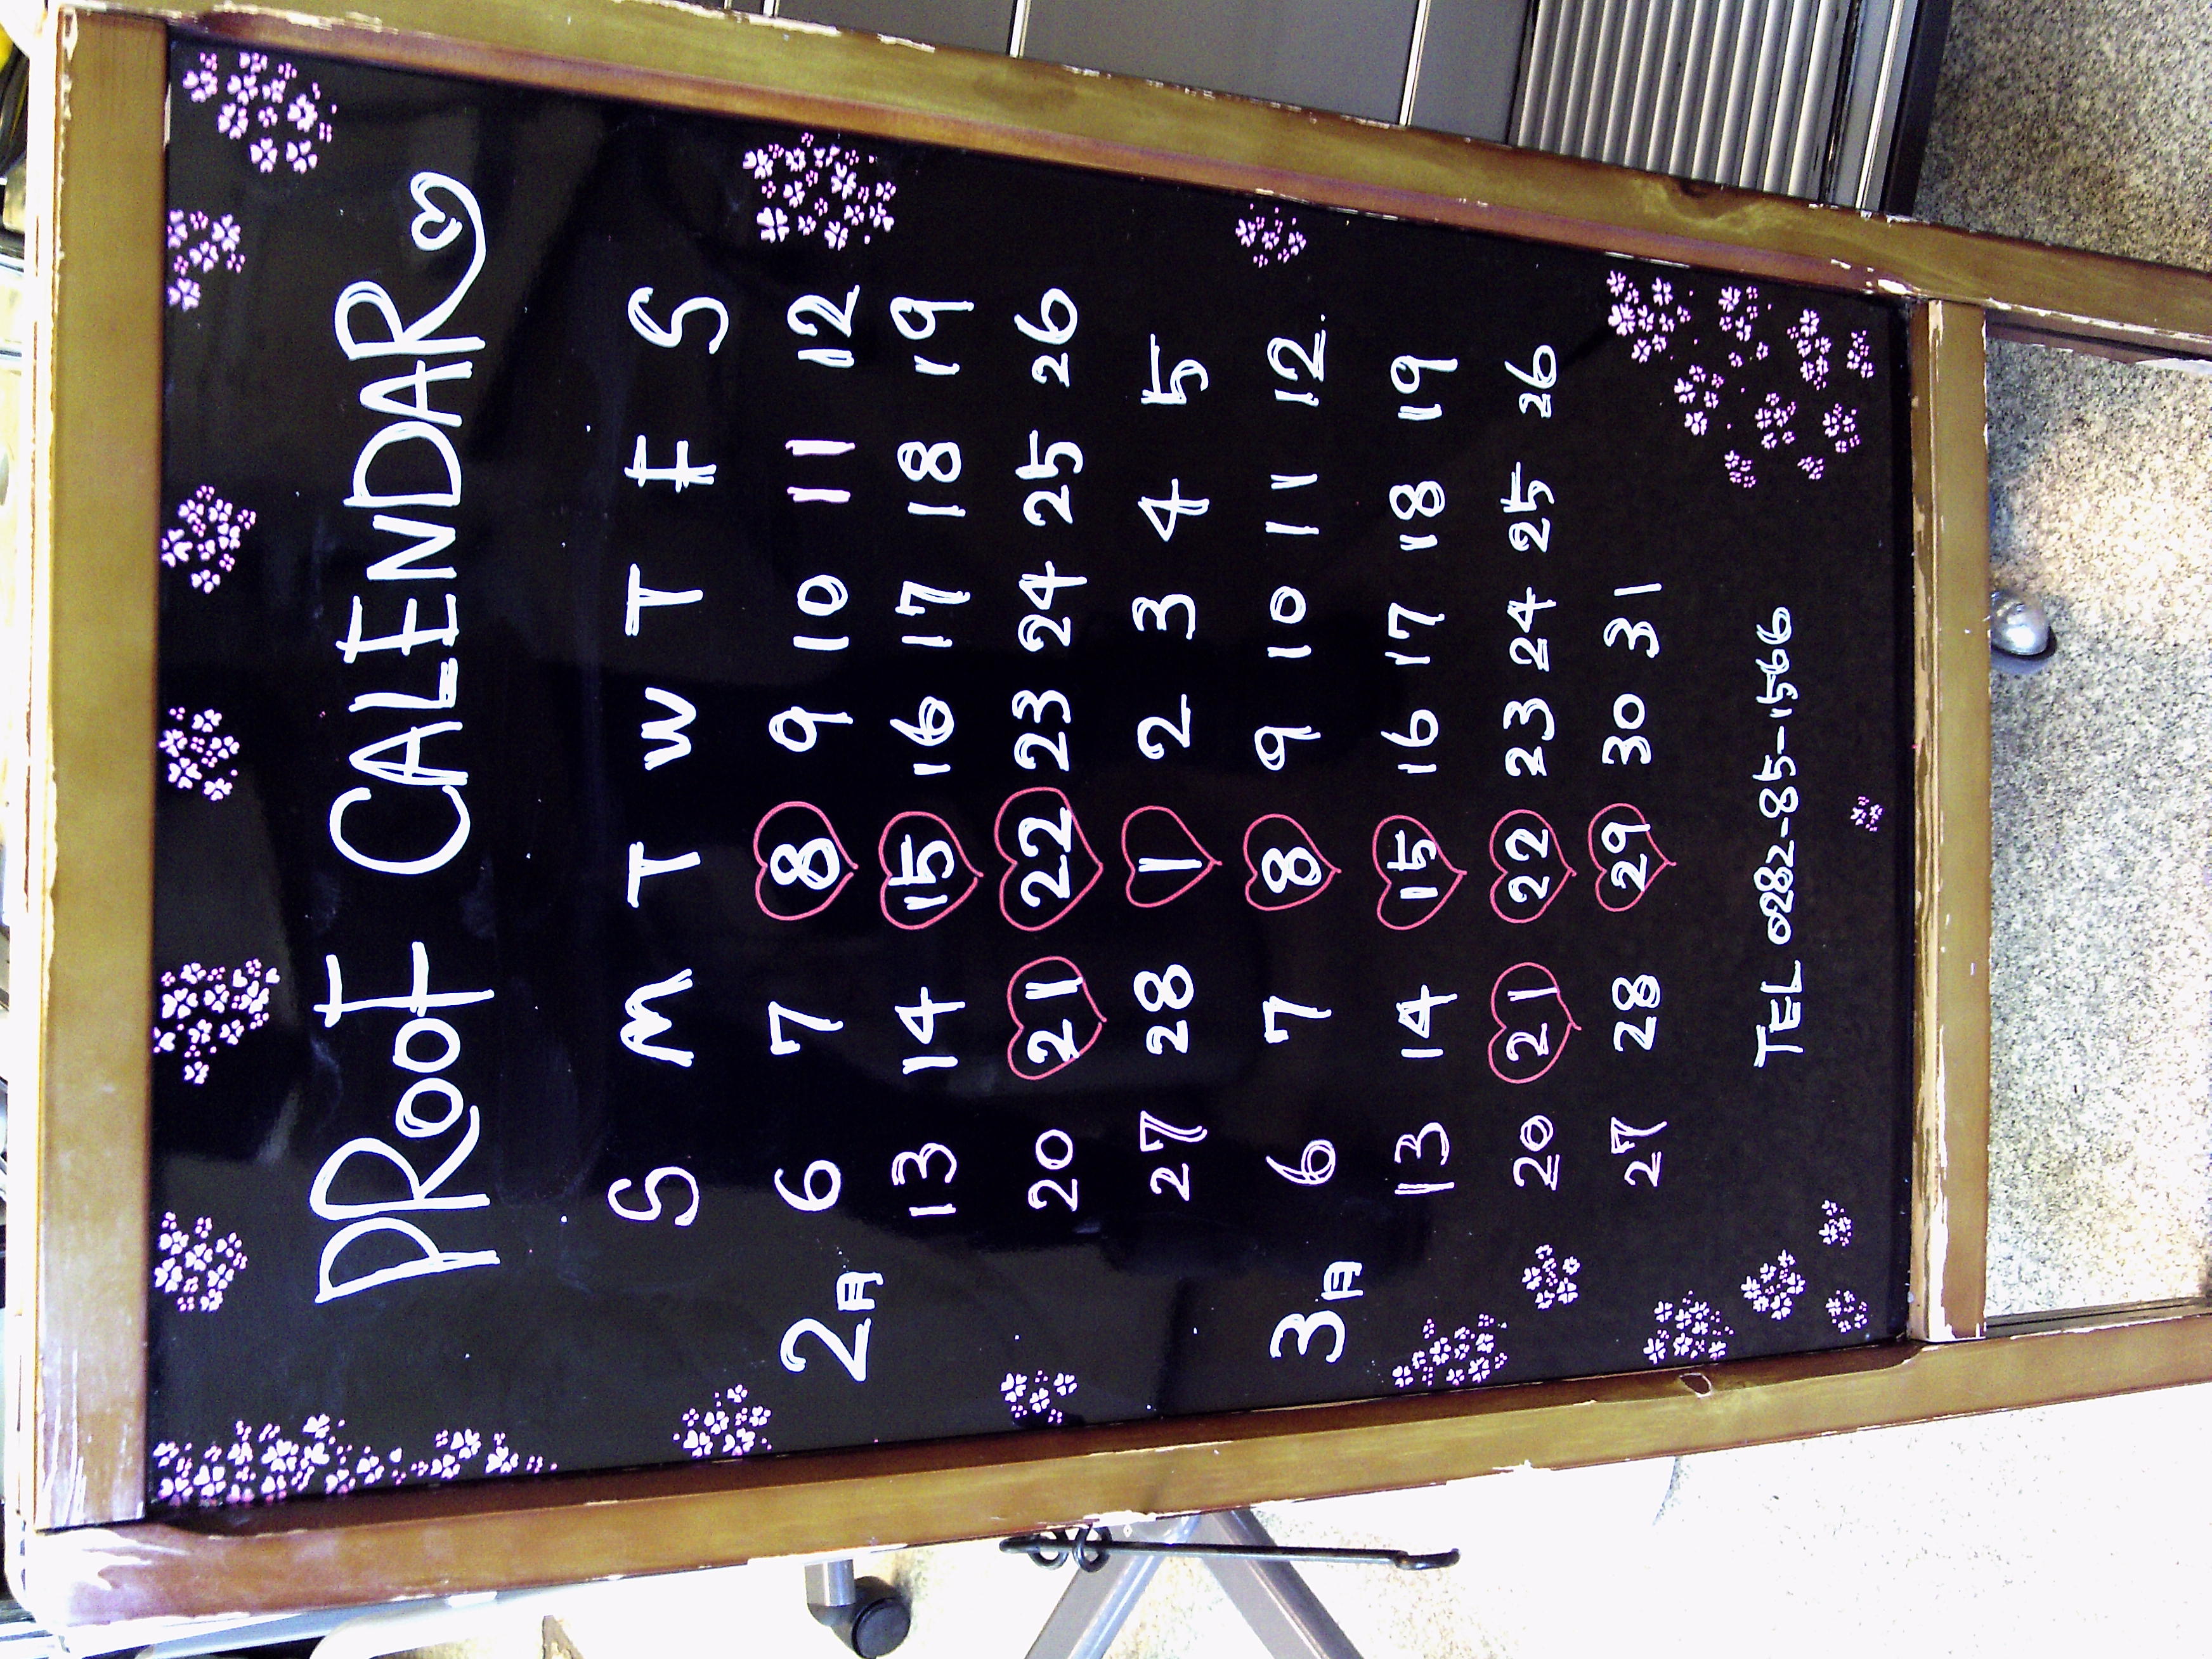 PRooT CALENDAR
S M T W T F S
2月 6 7 8 9 10 11 12
13 14 15 16 17 18 19
20 21 22 23 24 25 26
27 28 1 2 3 4 5
3月 6 7 8 9 10 11 12
13 14 15 16 17 18 19
20 21 22 23 24 25 26
27 28 29 30 31
TEL 0282-85-1566